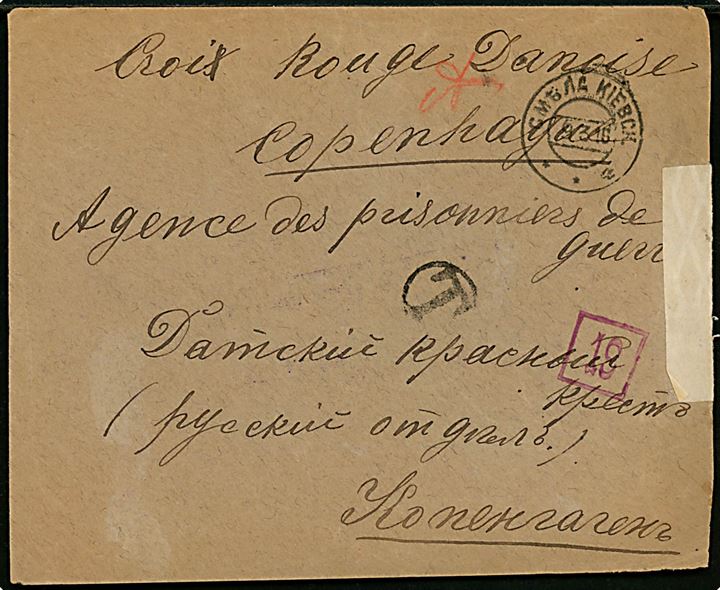 Croix Rouge Danoise
Copenhague
СМѢЛА КІЕВСК.
Agence des prisonniers de
guerr
T
Датскій красный
крестъ
16
(русскій отдѣлъ.)
Копенгагенъ